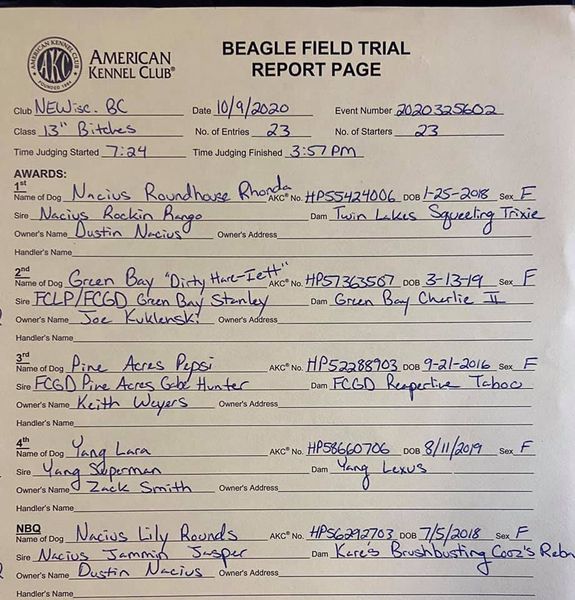 AMERICAN KENNEL CLUB
AKC
FOUNDED 1884
AMERICAN
KENNEL CLUB®
BEAGLE FIELD TRIAL
REPORT PAGE
Club NEWisc. BC Date 10/9/2020 Event Number 2020325602
Class 13" Bitches No. of Entries 23 No. of Starters 23
Time Judging Started 7:24 Time Judging Finished 3:57 PM
AWARDS:
1st
Name of Dog Nacius Roundhouse Rhonda AKC® No. HP55424006 DOB 1-25-2018 Sex F
Sire Nacius Rockin Rango Dam Twin Lakes Squeeling Trixie
Owner's Name Dustin Nacius Owner's Address
Handler's Name
2nd
Name of Dog Green Bay "Dirty Hare-Iett" AKC® No. HP57363507 DOB 3-13-19 Sex F
Sire FCLP/FCGD Green Bay Stanley Dam Green Bay Charlie II
Owner's Name Joe Kuklenski Owner's Address
Handler's Name
3rd
Name of Dog Pine Acres Pepsi AKC® No. HP52288903 DOB 9-21-2016 Sex F
Sire FCGD Pine Acres Gabe Hunter Dam FCGD Reapertive Taboo
Owner's Name Keith Weyers Owner's Address
Handler's Name
4th
Name of Dog Yang Lara AKC® No. HP58660706 DOB 8/11/2019 Sex F
Sire Yang Superman Dam Yang Lexus
Owner's Name Zack Smith Owner's Address
Handler's Name
NBQ
Name of Dog Nacius Lily Rounds AKC® No. HP56292703 DOB 7/5/2018 Sex F
Sire Nacius Jammin Jasper Dam Kare's Brushbusting Cooz's Reba
Owner's Name Dustin Nacius Owner's Address
Handler's Name